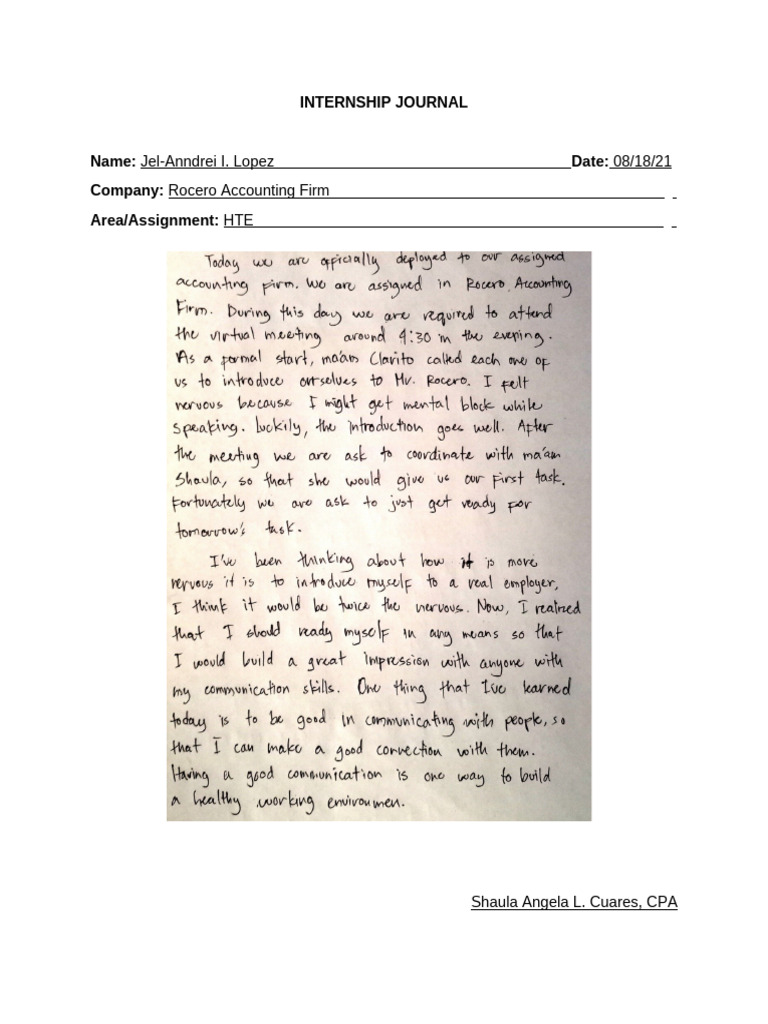 INTERNSHIP JOURNAL
Name: Jel-Anndrei I. Lopez Date: 08/18/21
Company: Rocero Accounting Firm
Area/Assignment: HTE
Today we are officially deployed to our assigned
accounting firm. We are assigned in Rocero Accounting
Firm. During this day we are required to attend
the virtual meeting around 4:30 in the evening.
As a formal start, ma'am Clarito called each one of
us to introduce ourselves to Mr. Rocero. I felt
nervous because I might get mental block while
speaking. Luckily, the introduction goes well. After
the meeting we are ask to coordinate with ma'am
Shaula, so that she would give us our first task.
Fortunately we are ask to just get ready for
tomorrow's task.
I've been thinking about how it is more
nervous it is to introduce myself to a real employer,
I think it would be twice the nervous. Now, I realized
that I should ready myself in any means so that
I would build a great impression with anyone with
my communication skills. One thing that I've learned
today is to be good in communicating with people, so
that I can make a good connection with them.
Having a good communication is one way to build
a healthy working environmen.
Shaula Angela L. Cuares, CPA